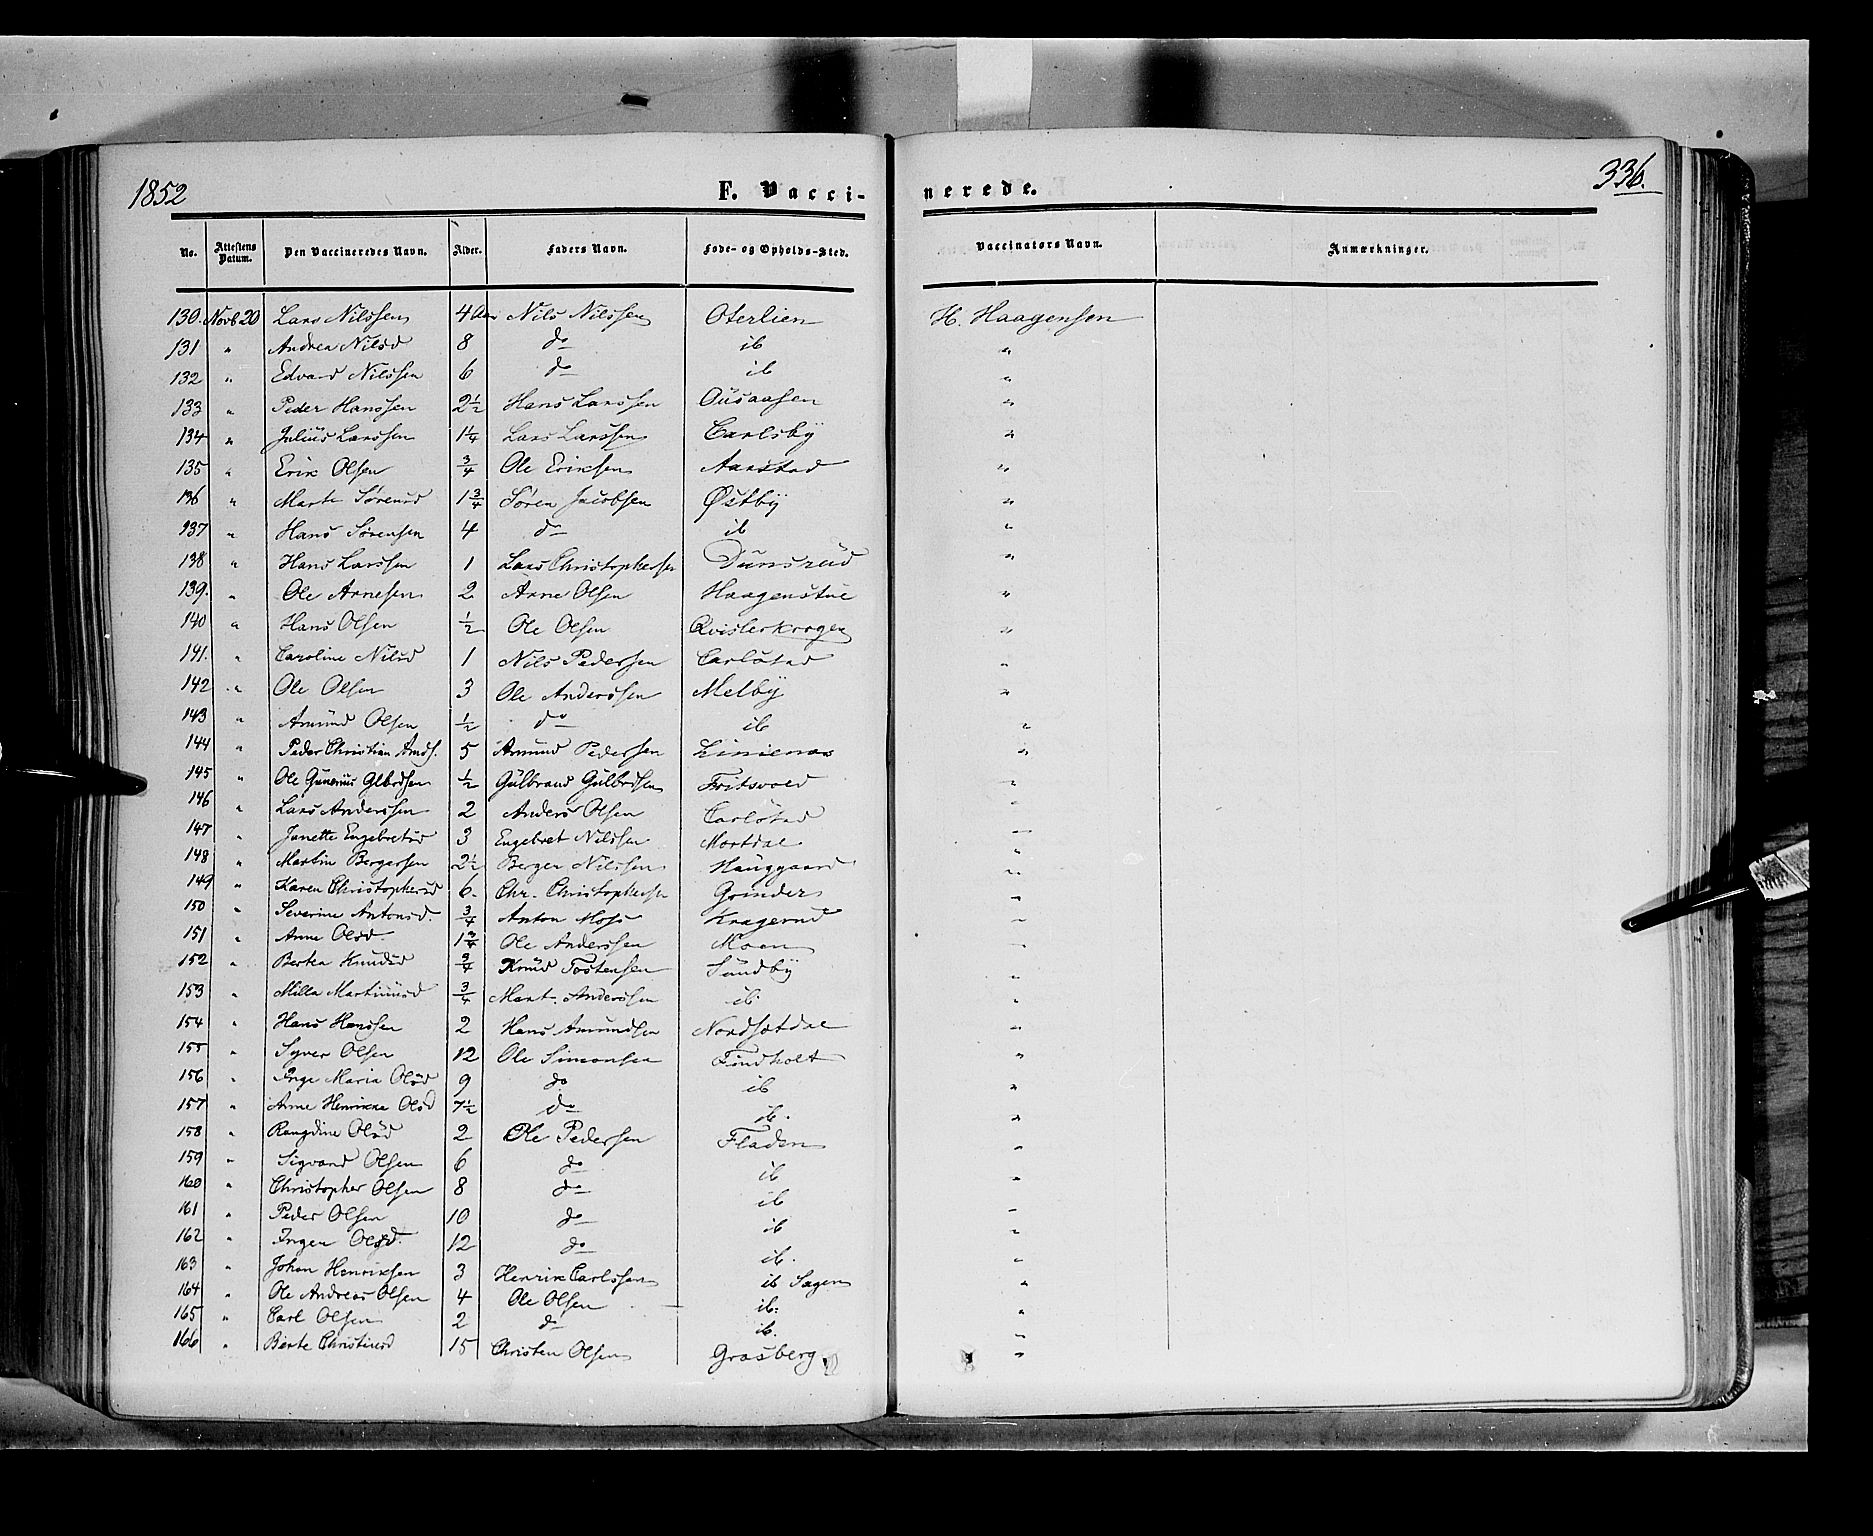 1852 F. Vacci- nerede. 336.
No. Attestens Datum. Den Vaccineredes Navn. Alder. Faders Navn. Føde- og Opholds-Sted. Vaccinators Navn. Anmærkninger.
130. Novb 20 Lars Nilssen 4 Aar Nils Nilssen Oterlien H. Haagensen
131 " Andrea Nilsd 8 do ib "
132 " Edvard Nilssen 6 do ib "
133 " Peder Hanssen 2½ Hans Larssen Ousaasen "
134 " Julius Larssen 1¼ Lars Larssen Carlsby "
135 " Erik Olsen ¾ Ole Eriksen Aarstad "
136 " Marte Sørensd 1¾ Sören Jacobsen Østby "
137 " Hans Sørensen 4 do ib "
138 " Hans Larssen 1 Lars Christophersen Dunsrud "
139. " Ole Arnesen 2 Arne Olsen Haagenstue "
140 " Hans Olsen ½ Ole Olsen Qvislerkrogen "
141. " Caroline Nilsd 1 Nils Pedersen Carlstad "
142 " Ole Olsen 3 Ole Anderssen Melby "
143 " Amund Olsen ½ do ib "
144 " Peder Christian Amds. 5 Amund Pedersen Linienas "
145 " Ole Gunerius Glbrdsen ½ Gulbrand Gulbrdsen Fritsvold "
146 " Lars Anderssen 2 Anders Olsen Carlstad "
147 " Janette Engebretsd 3 Engebret Nilssen Mortdal "
148 " Martin Bergersen 2½ Berger Nilssen Hauggaard "
149 " Karen Christophersd 6 Chr. Christophersen Grinder "
150 " Severine Antonsd. ¾ Anton Moss Kragerud "
151 " Anne Olsd. 1¾ Ole Anderssen Moen "
152 " Bertea Knudsd ¾ Knud Tostensen Sundby "
153 " Milla Martinusd ¾ Mart. Anderssen ib "
154 " Hans Hanssen 2 Hans Amundsen Nordsætdal "
155 " Syver Olsen 12 Ole Simonsen Findholt "
156 " Inge Maria Olsd 9 do ib "
157 " Anne Henrikka Olsd 7½ do ib. "
158 " Rangdine Olsd 2 Ole Pedersen Fladen "
159 " Sigvard Olsen 6 do ib "
160 " Christopher Olsen 8 do ib "
161 " Peder Olsen 10 do ib "
162 " Ingen Olsd. 12 do ib. "
163 " Johan Henriksen 3 Henrik Carlssen ib Sagen "
164 " Ole Andreas Olsen 4 Ole Olsen ib. "
165 " Carl Olsen 2 do ib. "
166 " Berte Christensd 15 Christen Olsen Grasberg "